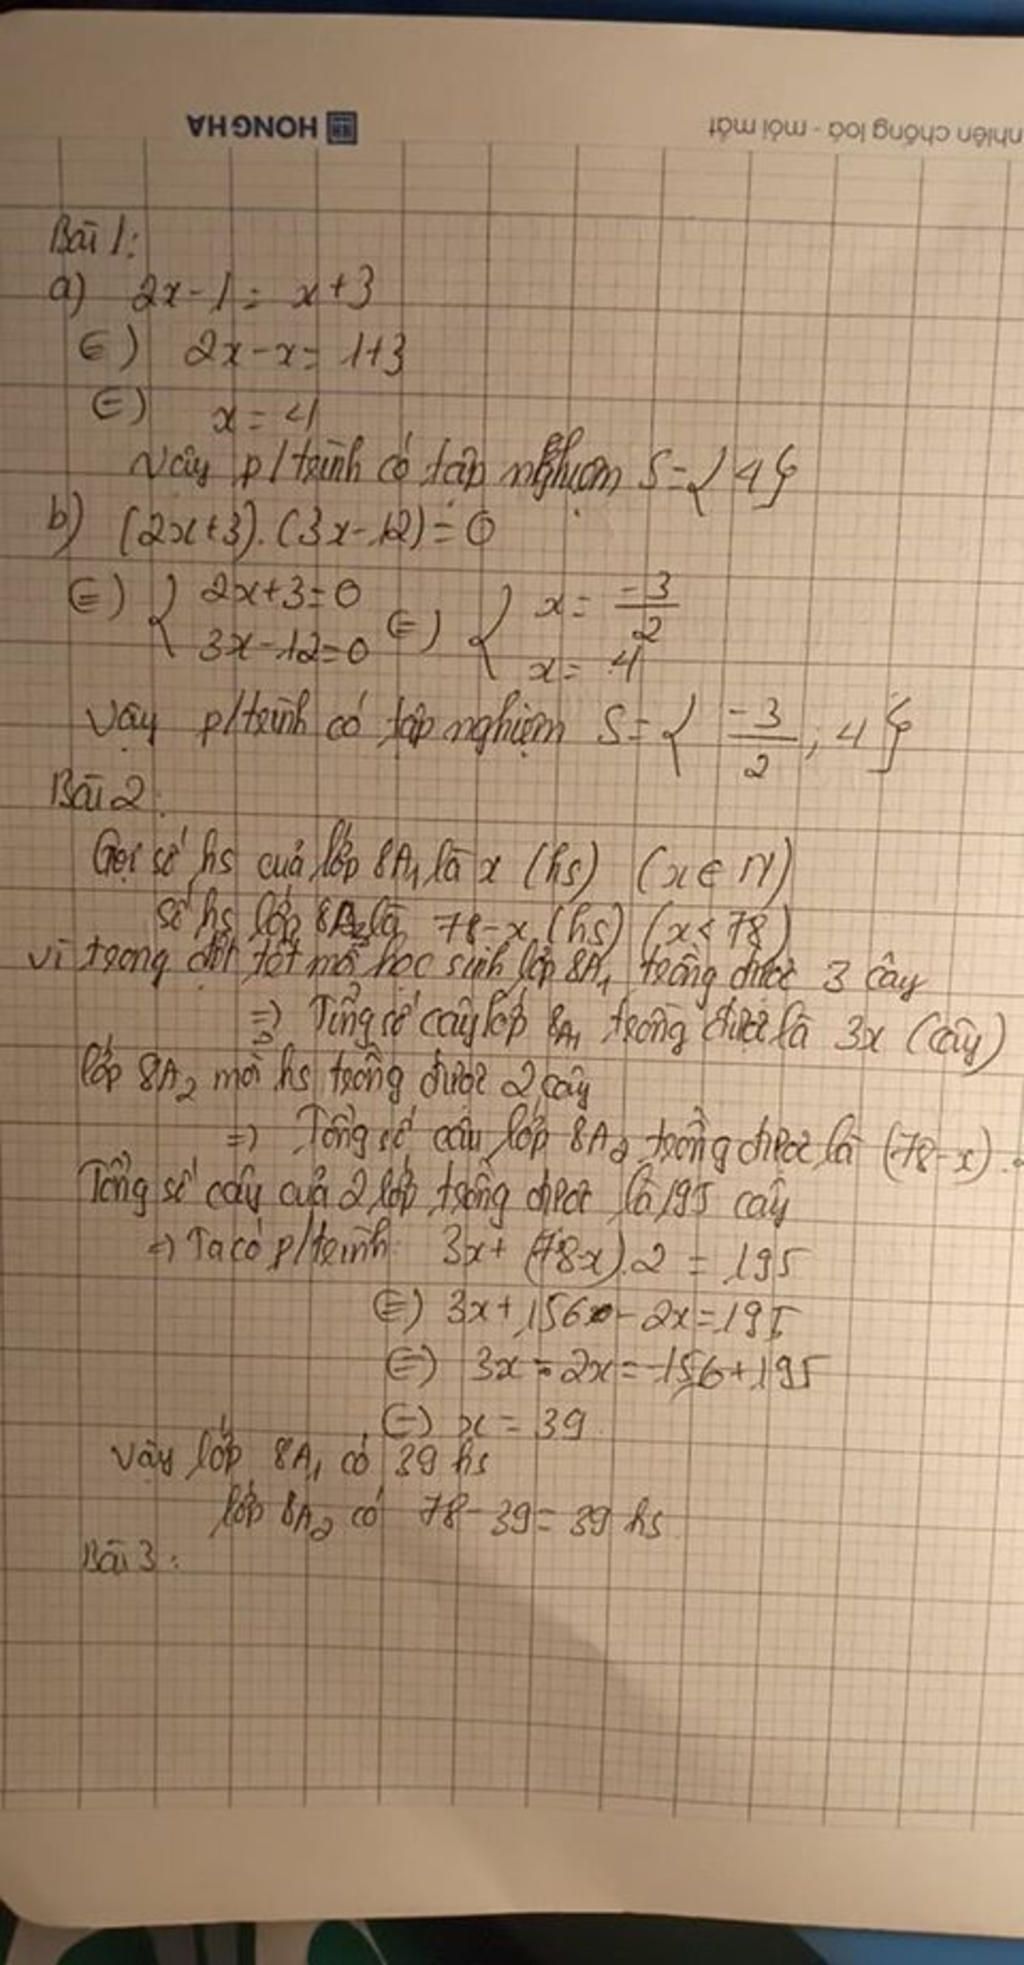 HONG HA
nhiên chống loá - mỏi mắt
Bài 1:
a) 2x-1 = x+3
(=) 2x-x = 1+3
(=) x = 4
Vậy p/trình có tập nghiệm S={4}
b) (2x+3).(3x-12)=0
(=) { 2x+3=0 (=) { x= -3/2
3x-12=0 x= 4
Vậy p/trình có tập nghiệm S={ -3/2 ; 4}
Bài 2:
Gọi số hs của lớp 8A1 là x (hs) (x∈N)
số hs lớp 8A2 là 78-x (hs) (x<78)
vì trong đợt tết mỗi học sinh lớp 8A1 trồng được 3 cây
=) Tổng số cây lớp 8A1 trồng được là 3x (cây)
lớp 8A2 mỗi hs trồng được 2 cây
=) Tổng số câu lớp 8A2 trồng được là (78-x).
Tổng số cây của 2 lớp trồng được là 195 cây
=) Ta có p/trình 3x+ (78-x).2 = 195
(=) 3x+156-2x=195
(=) 3x-2x=-156+195
(=) x = 39
Vậy lớp 8A1 có 39 hs
lớp 8A2 có 78-39=39 hs
Bài 3: